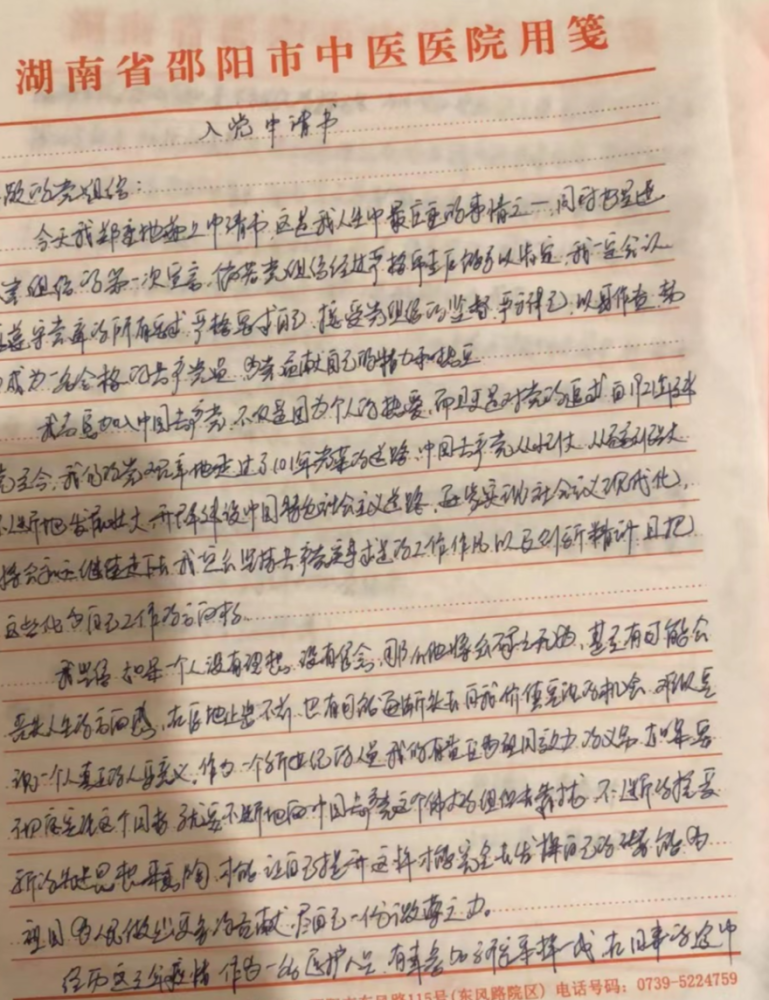 湖南省邵阳市中医医院用笺
入党申请书
敬的党组织：
今天我郑重地递上申请书，这是我人生中最庄重的事情之一，同时也是进
党组织的第一次宣言，倘若党组织经过严格审查后能够予以肯定，我一定会认
遵守党章的所有要求，严格要求自己，接受党组织的监督，严于律己，以身作责，努
成为一名合格的共产党员，为党贡献自己的精力和热
我志愿加入中国共产党，不仅是因为个人的热爱，而且更是对党的追求，自1921年
至今，我们的党走过了101年光荣的道路，中国共产党从小到大，从弱到强大
不断地发展壮大，开辟建设中国特色社会主义道路，逐步实现社会主义现代化，
将会继续走下去，我坚持共产党实事求是的工作作风以及创新精神，且把
这些化为自己工作的方向标。
我坚信，如果一个人没有理想，没有信念，那么他将会碌碌无为，甚至有可能会
丧失人生的方向感，在原地止步不前，也有可能逐渐失去自我价值实现的机会，难以意
识一个人真正的人生意义，作为一个新世纪的人，我们有着为祖国效力的义务，如果要
彻底实现这个目标，就要不断地向中国共产党这个伟大的组织去靠拢，不断的接受
新的先进思想熏陶，才能让自己提升，这样才能完全去发挥自己的潜能，为
祖国为人民做出更多的贡献，尽自己一份微薄之力。
经历这三年疫情，作为一名医护人员，有幸参与
路115号(东风路院区) 电话号码：0739-5224759